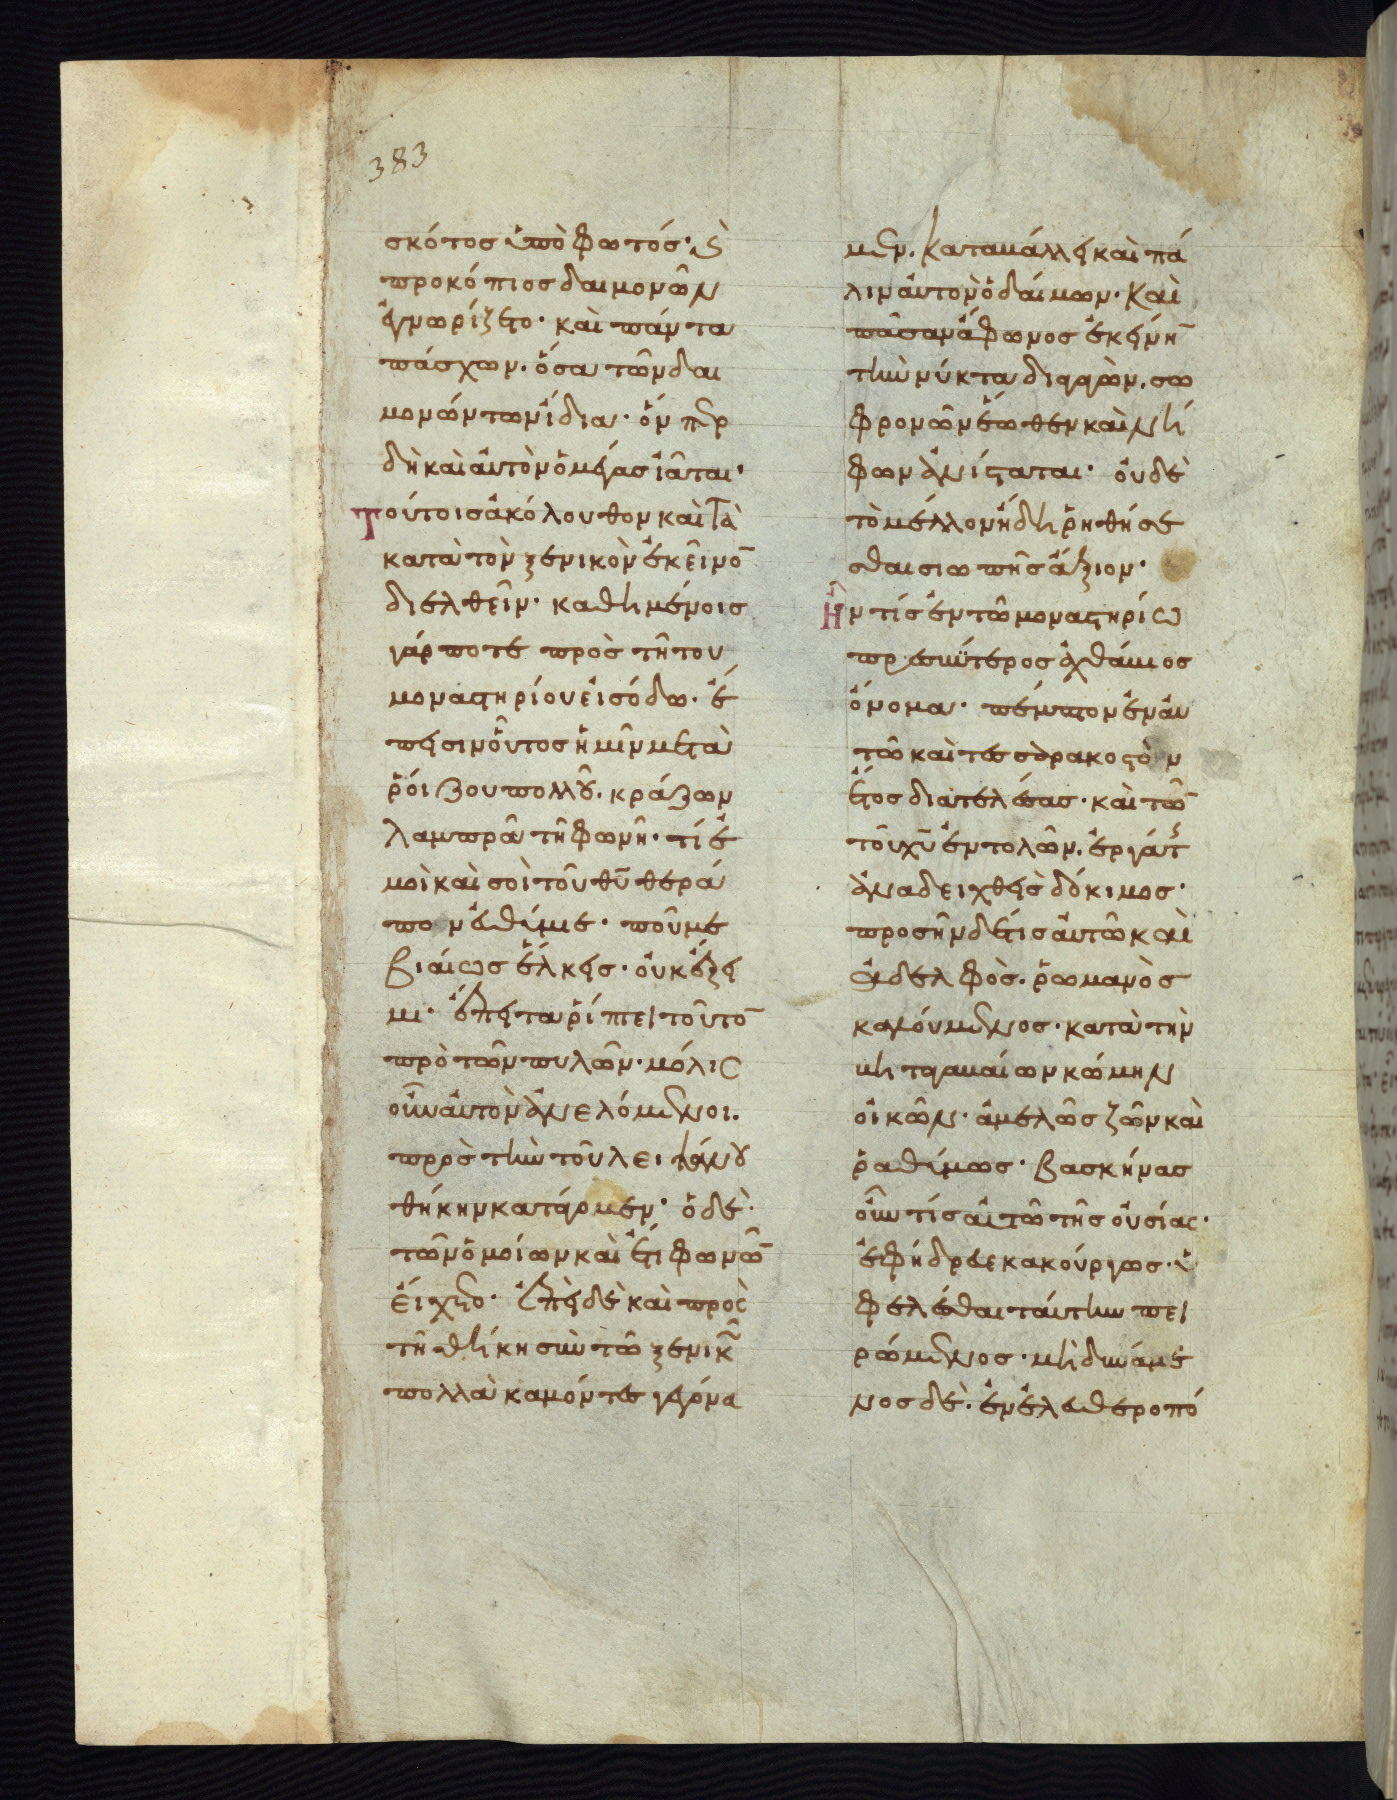 383
σκότος ὑπὸ φωτός· ὁ
προκόπιος δαιμονῶν
ἐγνωρίζετο· καὶ πάντα
πάσχων. ὅσα τῶν δαι
μονώντων ἴδια· ὅν περ
δὴ καὶ αὐτὸν ὁ μέγας ἰᾶται·
Τούτοις ἀκόλουθον καὶ τὰ
κατὰ τὸν ξενικὸν ἐκεῖνο̄
διελθεῖν· καθημένοις
γάρ ποτε πρὸς τῆ του
μοναστηρίου εἰσόδω. ἐ
πεισιν οὗτος ἡμῖν μετὰ
ῥοίζου πολλοῦ. κράζων
λαμπρᾶ τῆ φωνῆ· τί ἐ
μοὶ καὶ σοὶ τοῦ θῦ θερά
πον εὐθύμιε· ποῦ με
βιαίως ἕλκεις· οὐκ ἔξει
μι· ἔπειτα ῥίπτει τοῦτο̄
πρὸ τῶν πυλῶν. μόλις
οὖν αὐτὸν ἀνελόμενοι.
πρὸς τὴν τοῦ λειψάνου
θήκην κατάγομεν· ὁ δὲ·
τῶν ὁμοίων καὶ ἔτι φωνῶ̄
εἴχετο· ἐπεὶ δὲ καὶ πρὸς
τῆ θήκη σὺν τῶ ξενικῶ
πολλὰ καμόντες γεγόνα
μεν. καταβάλλει καὶ πά
λιν αὐτὸν ὁ δαίμων. καὶ
πᾶσαν ἄφωνος ἐκείνη̄
τὴν νύκτα διαγαγὼν. σω
φρονῶν ἕωθεν καὶ νή
φων ἀνίσταται· οὐδὲ
τὸ μέλλον ἤδη ῥηθήσε
σθαι σιωπῆς ἄξιον·
Ἦν τίς ἐν τῶ μοναστηρίω
πρεσβύτερος ἀχθάβιος
ὄνομα· πέμπτον ἐν αὐ
τῶ καὶ τεσσαρακοστὸν
ἔτος διατελέσας· καὶ τῶ̄
τοῦ χῦ ἐντολῶν. ἐργάτης
ἀναδειχθεὶς δόκιμος·
προσῆν δέ τις αὐτῶ καὶ
ἀδελφὸς. ῥωμανὸς
καλούμενος· κατὰ τὴν
βηταγαβαίων κώμην
οἰκῶν· ἀμελῶς ζῶν καὶ
ῥαθύμως· βασκήνας
οὖν τίς αὐτῶ τῆς οὐσίας·
ἐφήδρευε κακούργως· ὑ
φελέσθαι ταύτην πει
ρώμενος· μὴ δυνάμε
νος δὲ· ἐν ἐλευθεροπό